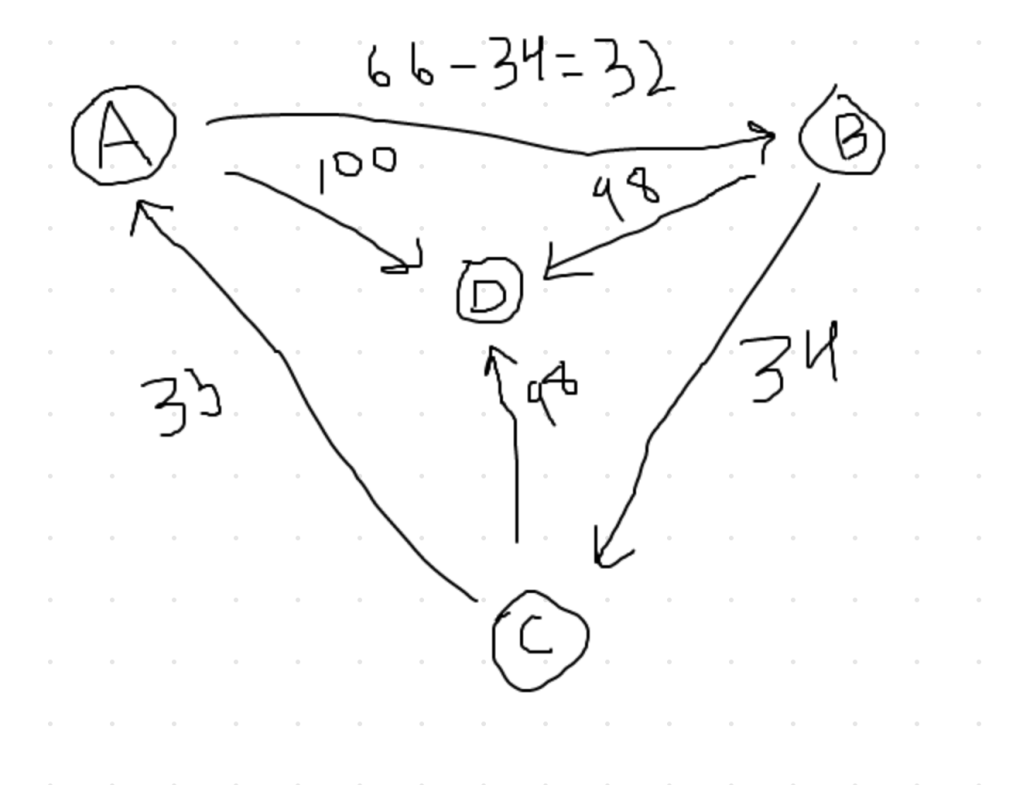 66-34=32
A
B
100
98
D
33
34
98
C